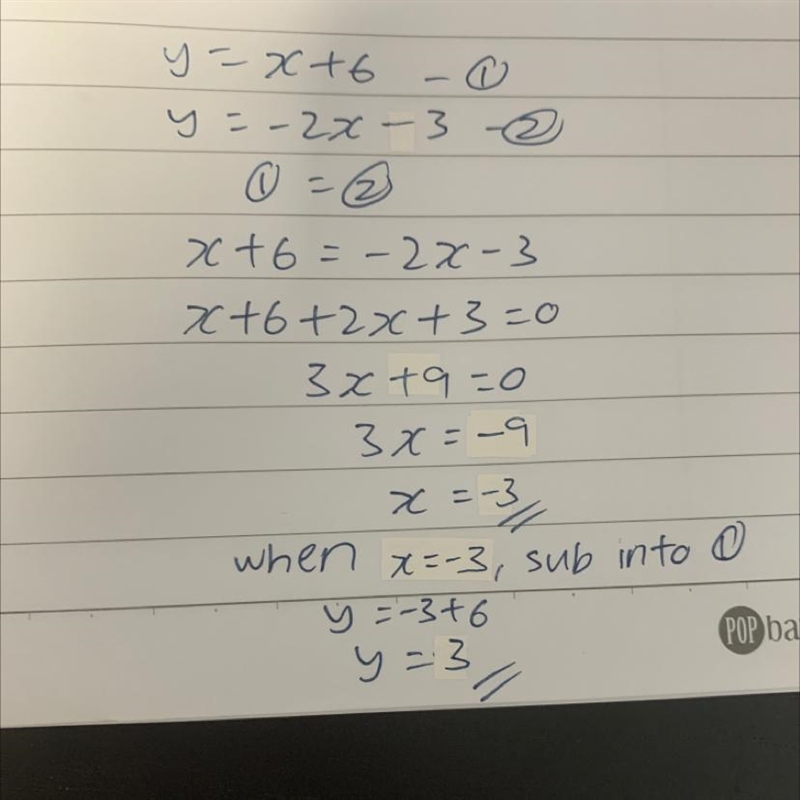 y = x + 6 - ①
y = -2x - 3 - ②
① = ②
x + 6 = -2x - 3
x + 6 + 2x + 3 = 0
3x + 9 = 0
3x = -9
x = -3 //
when x = -3, sub into ①
y = -3 + 6
y = 3 //
POP ba